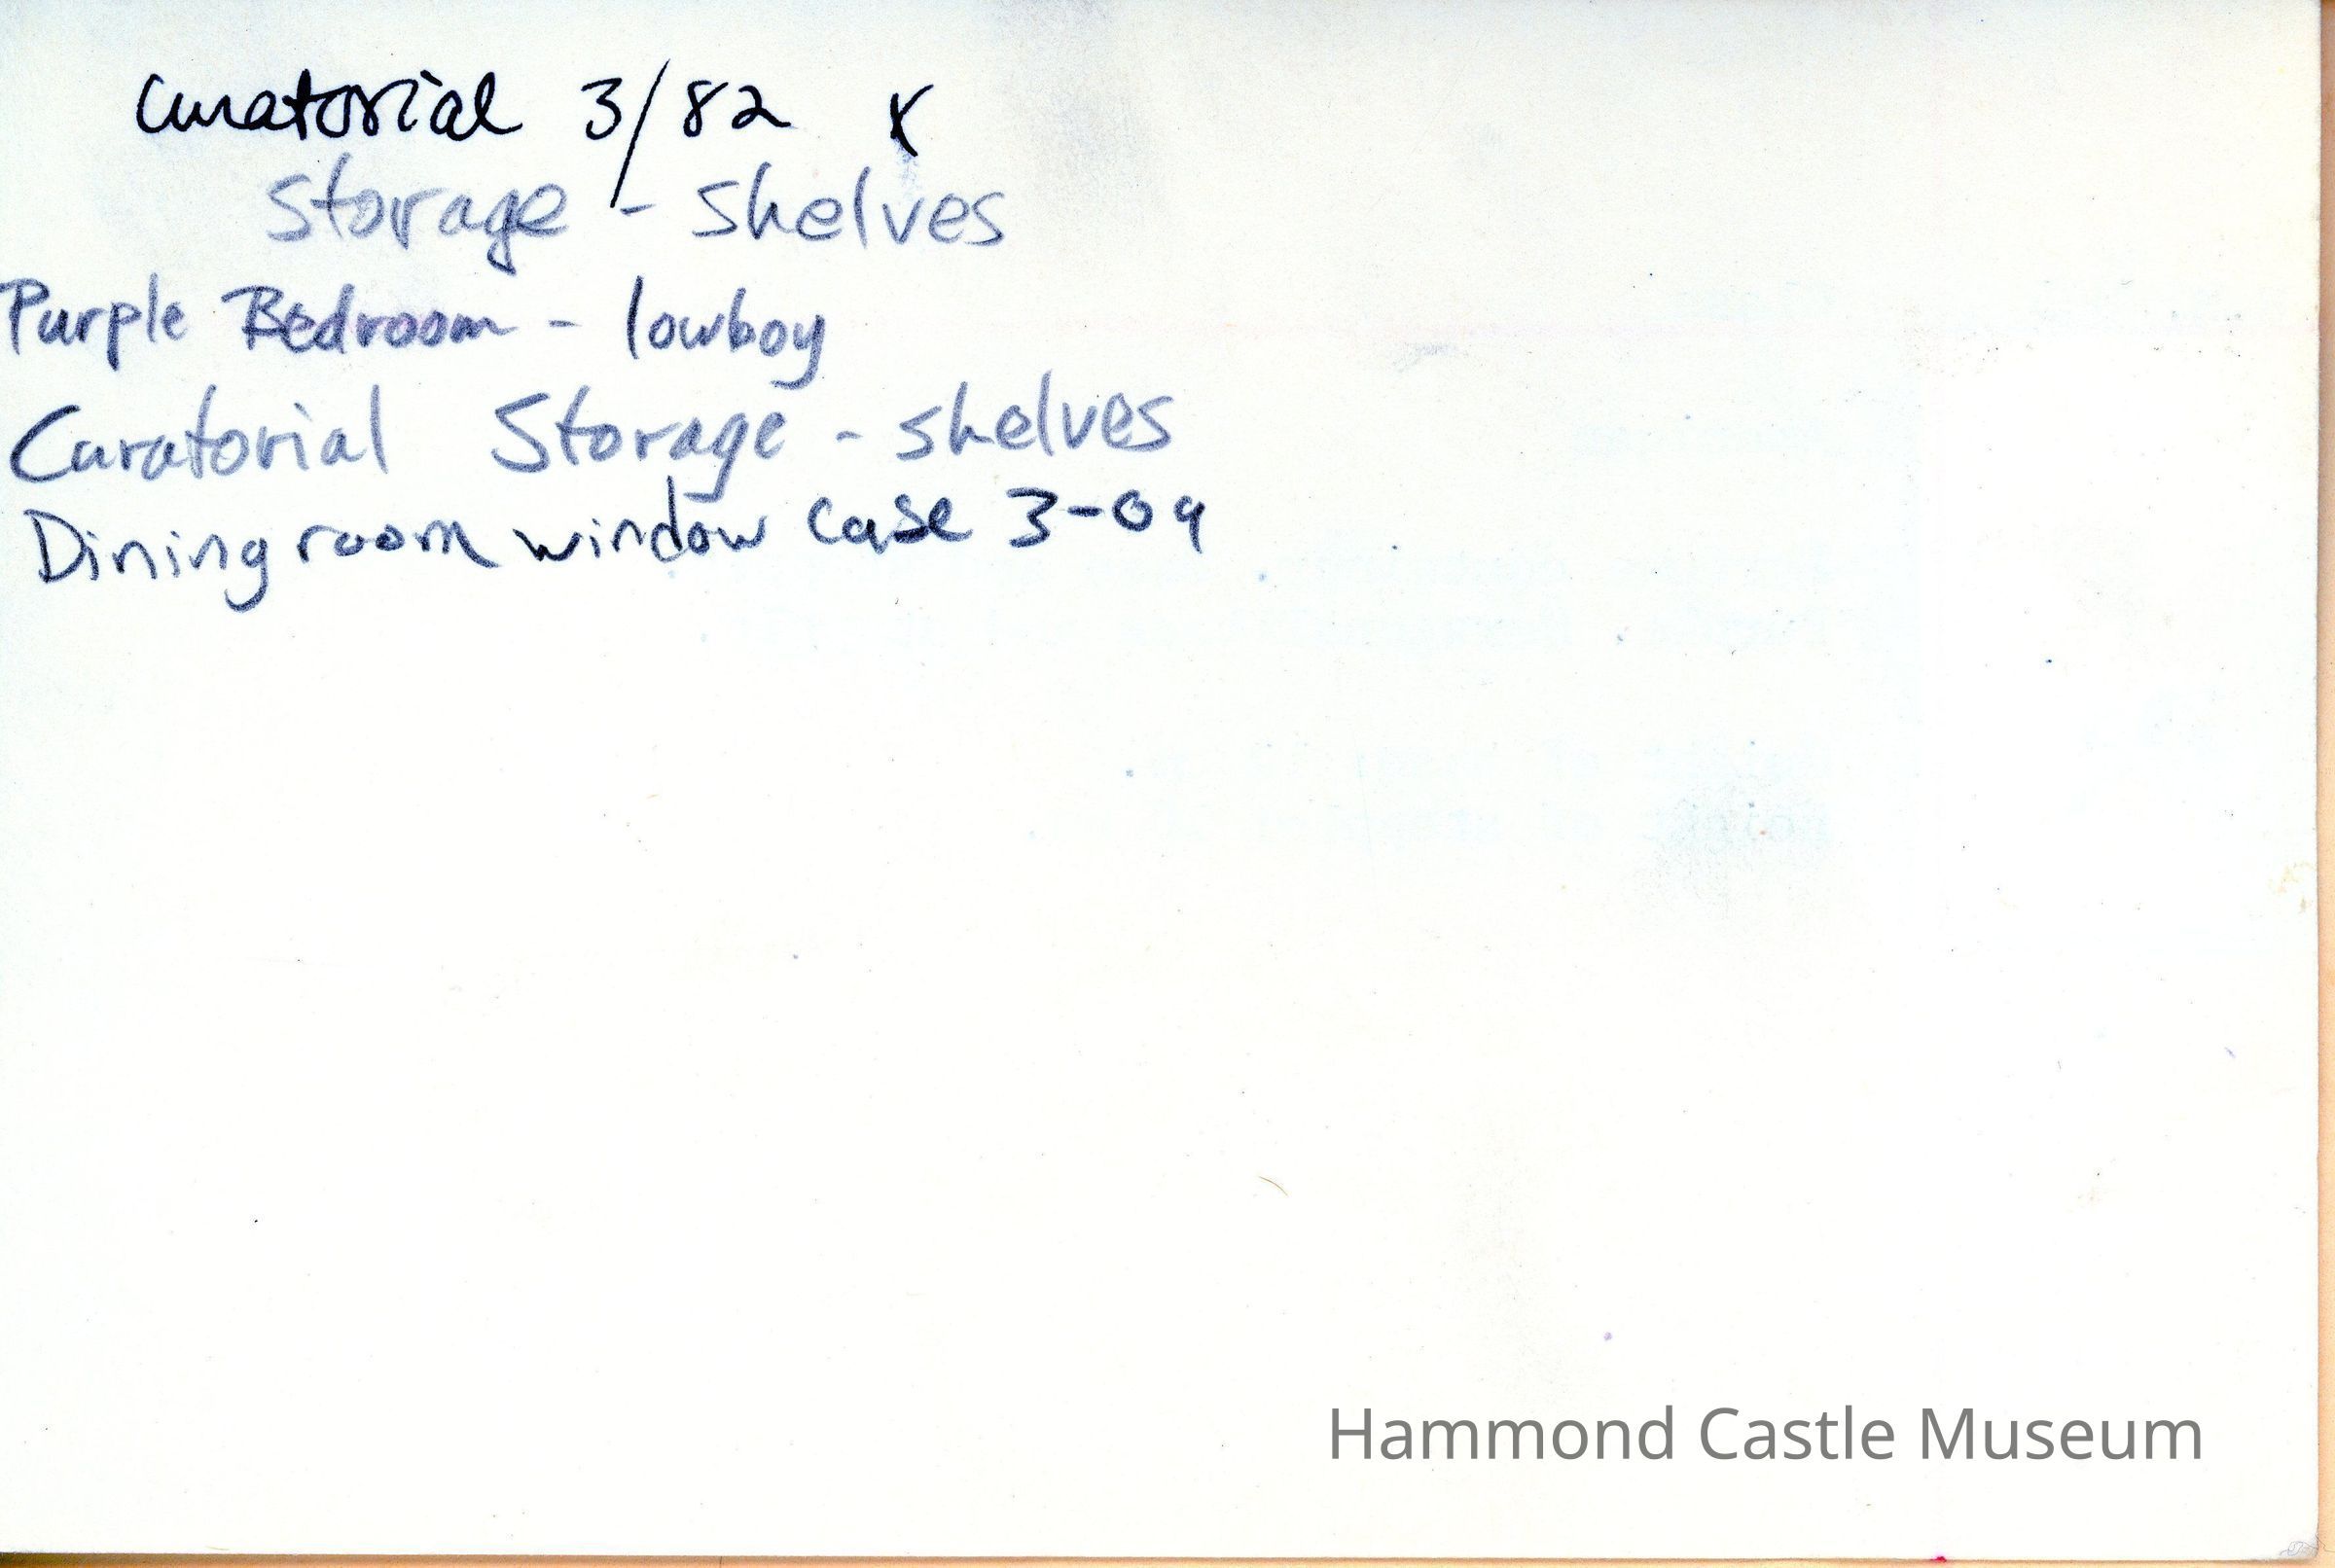 Curatorial 3/82 x
Storage - shelves
Purple Bedroom - lowboy
Curatorial Storage - shelves
Dining room window case 3-09
Hammond Castle Museum